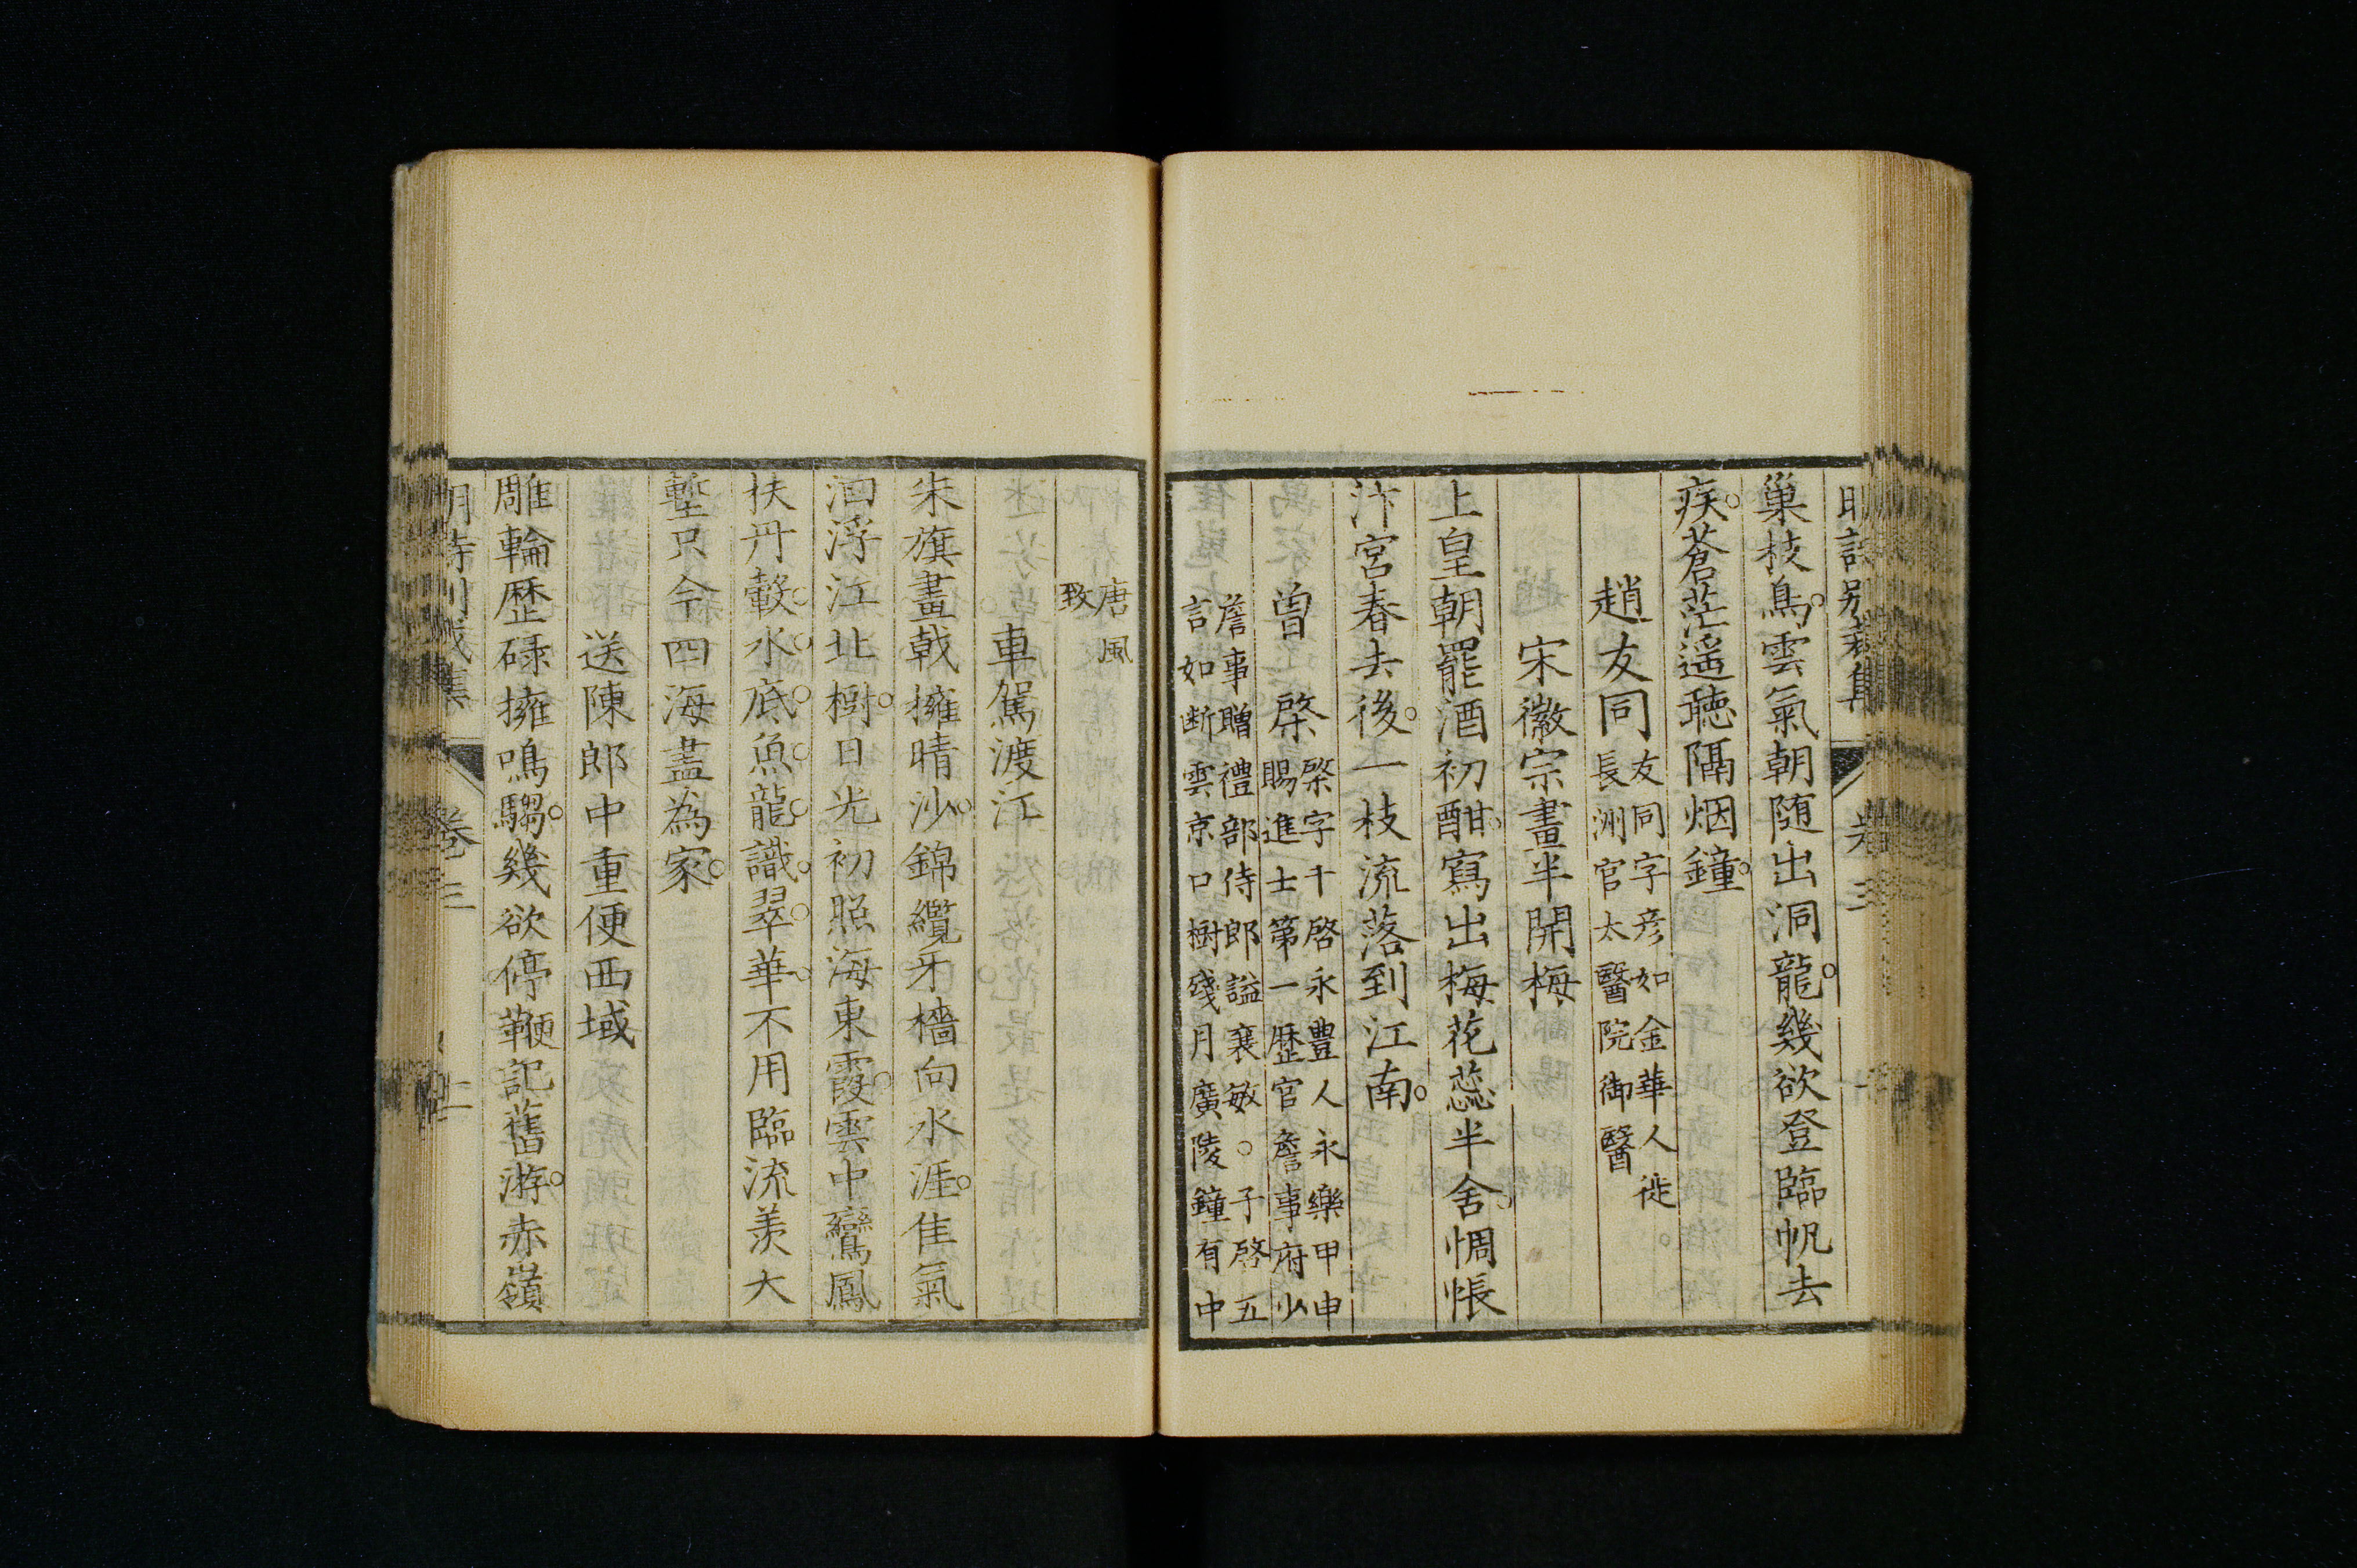 巢枝鳥雲氣朝随出洞龍幾欲登臨帆去
疾蒼茫遥聽隔烟鐘
趙友同友同字彦如金華人徙
長洲官太醫院御醫
宋徽宗畫半開梅
上皇朝罷酒初酣寫出梅花蕊半舍惆悵
汴宮春去後一枝流落到江南
曾棨棨字子啓永豊人永樂甲申
賜進士第一歴官詹事府少
詹事贈禮部侍郎謚襄敏○子啓五
言如断雲京口樹殘月廣陵鐘有中
唐風
致
車駕渡江
朱旗畫戟擁晴沙錦纜牙檣向水涯佳氣
洄浮江北樹日光初照海東霞雲中鸞鳳
扶丹轂水底魚龍識翠華不用臨流羡大
塹只今四海盡為家
送陳郎中重使西域
雕輪歴碌擁鳴騶幾欲停鞭記舊游赤嶺
卷三